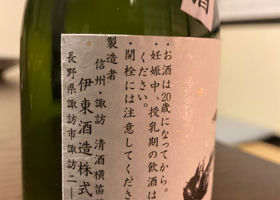 酒
・お酒は20歳になってから。
・妊娠中、授乳期の飲酒は
ください。
・開栓には注意してくださ
製造者
信州・諏訪 清酒横笛
伊東酒造株式
長野県諏訪市諏訪二